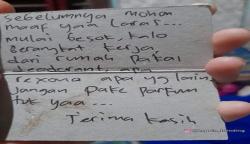 sebelumnya mohon
maaf yang Laras...
mulai besok, kalo
berangkat kerja
dari rumah pakai
deodorant, apa
rexona apa yg lain,
jangan pake parfum
tut yaa...
Terima kasih